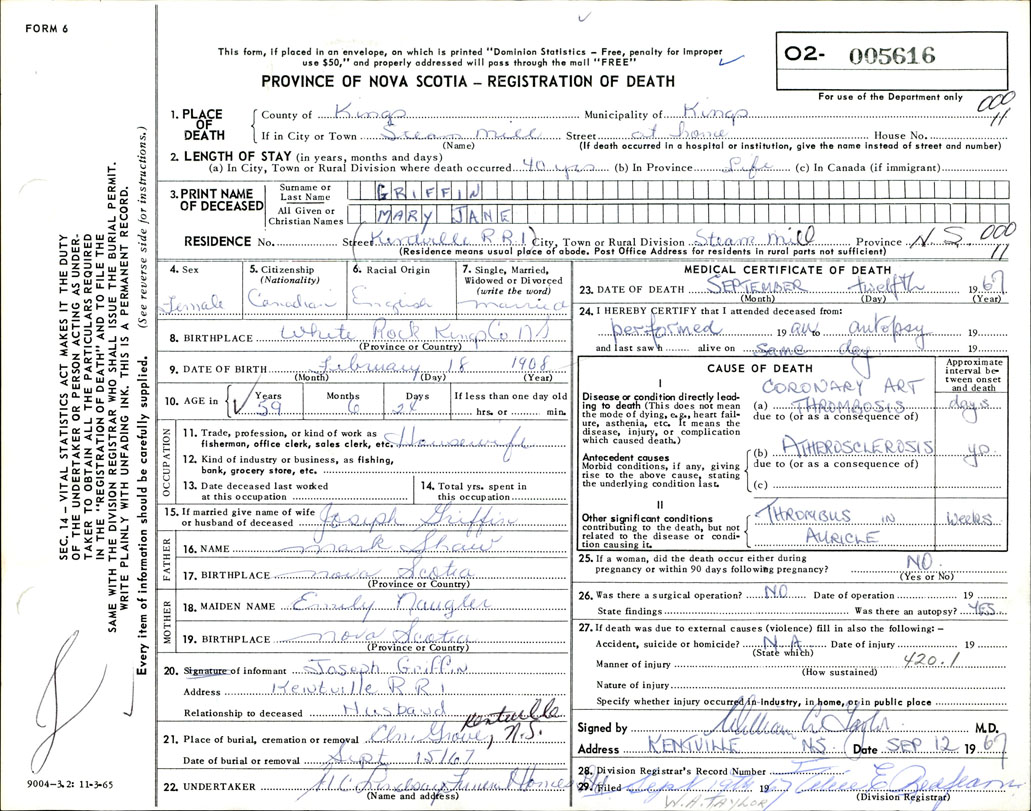 FORM 6
This form, if placed in an envelope, on which is printed "Dominion Statistics – Free, penalty for improper
use $50," and properly addressed will pass through the mail "FREE"
PROVINCE OF NOVA SCOTIA – REGISTRATION OF DEATH
O2- 005616
For use of the Department only
000
11
1. PLACE OF DEATH
County of Kings Municipality of Kings
If in City or Town Steam Mill Street at home House No.
(Name) (If death occurred in a hospital or institution, give the name instead of street and number)
2. LENGTH OF STAY (in years, months and days)
(a) In City, Town or Rural Division where death occurred 40 yrs (b) In Province Life (c) In Canada (if immigrant)
3. PRINT NAME OF DECEASED
Surname or Last Name GRIFFIN
All Given or Christian Names MARY JANE
RESIDENCE No. Street Kentville R R 1 City, Town or Rural Division Steam Mill Province N S 000
11
(Residence means usual place of abode. Post Office Address for residents in rural parts not sufficient)
4. Sex
Female
5. Citizenship
(Nationality)
Canadian
6. Racial Origin
English
7. Single, Married,
Widowed or Divorced
(write the word)
married
8. BIRTHPLACE White Rock Kings Co NS
(Province or Country)
9. DATE OF BIRTH February 18 1908
(Month) (Day) (Year)
10. AGE in
Years
59
Months
6
Days
24
If less than one day old
hrs. or min.
OCCUPATION
11. Trade, profession, or kind of work as
fisherman, office clerk, sales clerk, etc. Housewife
12. Kind of industry or business, as fishing,
bank, grocery store, etc.
13. Date deceased last worked
at this occupation
14. Total yrs. spent in
this occupation
15. If married give name of wife
or husband of deceased Joseph Griffin
FATHER
16. NAME Mark Shaw
17. BIRTHPLACE Nova Scotia
(Province or Country)
MOTHER
18. MAIDEN NAME Emily Naugler
19. BIRTHPLACE Nova Scotia
(Province or Country)
20. Signature of informant Joseph Griffin
Address Kentville R R 1
Relationship to deceased Husband
21. Place of burial, cremation or removal Elm Grove, Kentville N.S.
Date of burial or removal Sept 15/67
22. UNDERTAKER Lindsay Funeral Home
(Name and address)
MEDICAL CERTIFICATE OF DEATH
23. DATE OF DEATH SEPTEMBER twelfth 1967
(Month) (Day) (Year)
24. I HEREBY CERTIFY that I attended deceased from:
performed 19 an to autopsy 19
and last saw h alive on same day 19
CAUSE OF DEATH
Approximate
interval be-
tween onset
and death
I
Disease or condition directly lead-
ing to death (This does not mean
the mode of dying, e.g., heart fail-
ure, asthenia, etc. It means the
disease, injury, or complication
which caused death.)
CORONARY ART
(a) THROMBOSIS days
due to (or as a consequence of)
Antecedent causes
Morbid conditions, if any, giving
rise to the above cause, stating
the underlying condition last.
(b) ATHEROSCLEROSIS
due to (or as a consequence of)
(c)
II
Other significant conditions
contributing to the death, but not
related to the disease or condi-
tion causing it.
THROMBUS IN weeks
AURICLE
25. If a woman, did the death occur either during
pregnancy or within 90 days following pregnancy? NO
(Yes or No)
26. Was there a surgical operation? NO Date of operation 19
State findings Was there an autopsy? YES
27. If death was due to external causes (violence) fill in also the following: –
Accident, suicide or homicide? N A Date of injury 19
(State which)
Manner of injury 420.1
(How sustained)
Nature of injury
Specify whether injury occurred in industry, in home, or in public place
Signed by William A Taylor M.D.
Address KENTVILLE NS Date SEP 12 1967
28. Division Registrar's Record Number
29. Filed Sept 19th 19
(Division Registrar)
W.A. TAYLOR
SEC. 14 – VITAL STATISTICS ACT MAKES IT THE DUTY
OF THE UNDERTAKER OR PERSON ACTING AS UNDER-
TAKER TO OBTAIN ALL THE PARTICULARS REQUIRED
IN THE "REGISTRATION OF DEATH" AND TO FILE THE
SAME WITH THE DIVISION REGISTRAR WHO SHALL ISSUE THE BURIAL PERMIT.
WRITE PLAINLY WITH UNFADING INK. THIS IS A PERMANENT RECORD.
Every item of information should be carefully supplied. (See reverse side for instructions.)
9004-3.2: 11-3-65